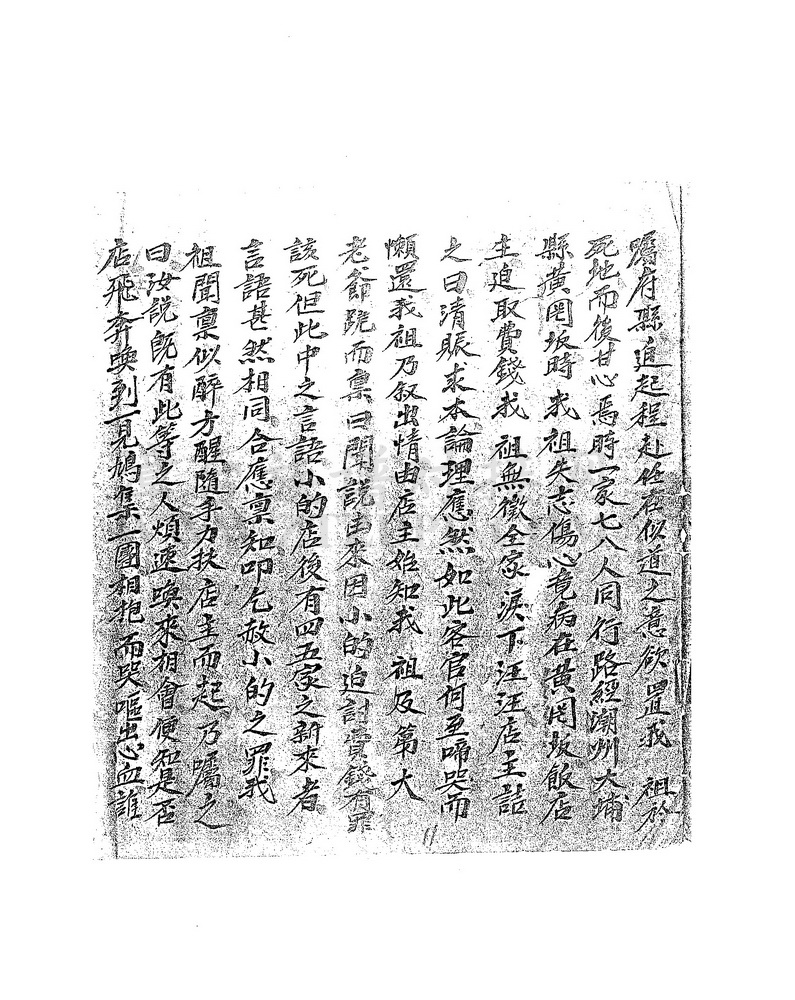 囑府縣迫起程赴任在似道之意欲置我 祖於
死地而後甘心焉時一家七八人同行路經潮州大埔
縣黃岡坂時我祖失志傷心竟病在黃岡坂飯店
主迫取費錢我 祖無徵全家淚下汪汪店主詰
之曰清賬求本論理應然如此客官何至啼哭而
懶還我祖乃叙出情由店主始知我 祖及第大
老爺跪而稟曰聞說由來因小的迫討費錢有罪
該死但此中之言語小的店後有四五家之新來者
言語甚然相同合應稟知叩乞赦小的之罪我
祖聞稟似醉方醒隨手力扶店主而起乃囑之
曰汝說既有此等之人煩速喚來相會便知是否
店飛奔喚到一見鳩集一團相抱而哭嘔出心血誰
11